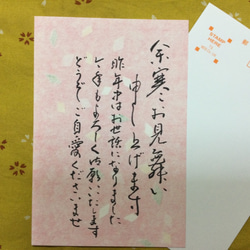 余寒お見舞い
申し上げます
昨年中はお世話になりました
今年もよろしくお願いいたします
どうぞご自愛くださいませ
STAMP
HERE